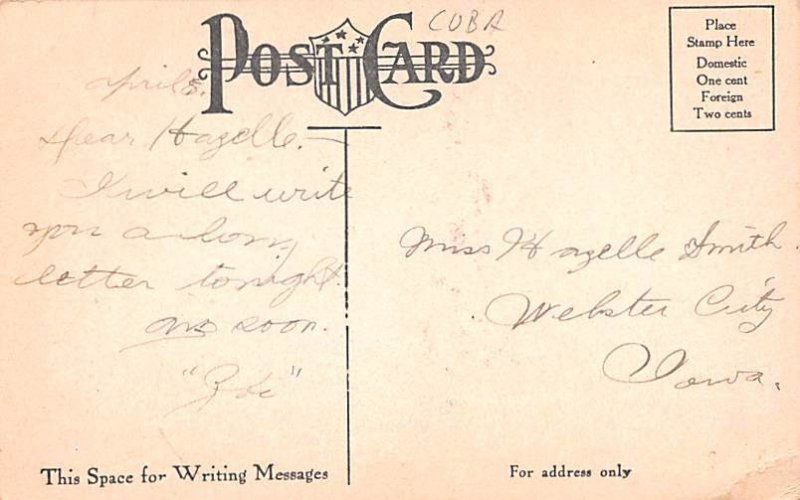 CUBA
POST CARD
Place
Stamp Here
Domestic
One cent
Foreign
Two cents
April
Dear Hazelle. —
I will write
you a long
letter tonight.
soon.
Miss Hazelle Smith.
Webster City
Iowa.
This Space for Writing Messages
For address only